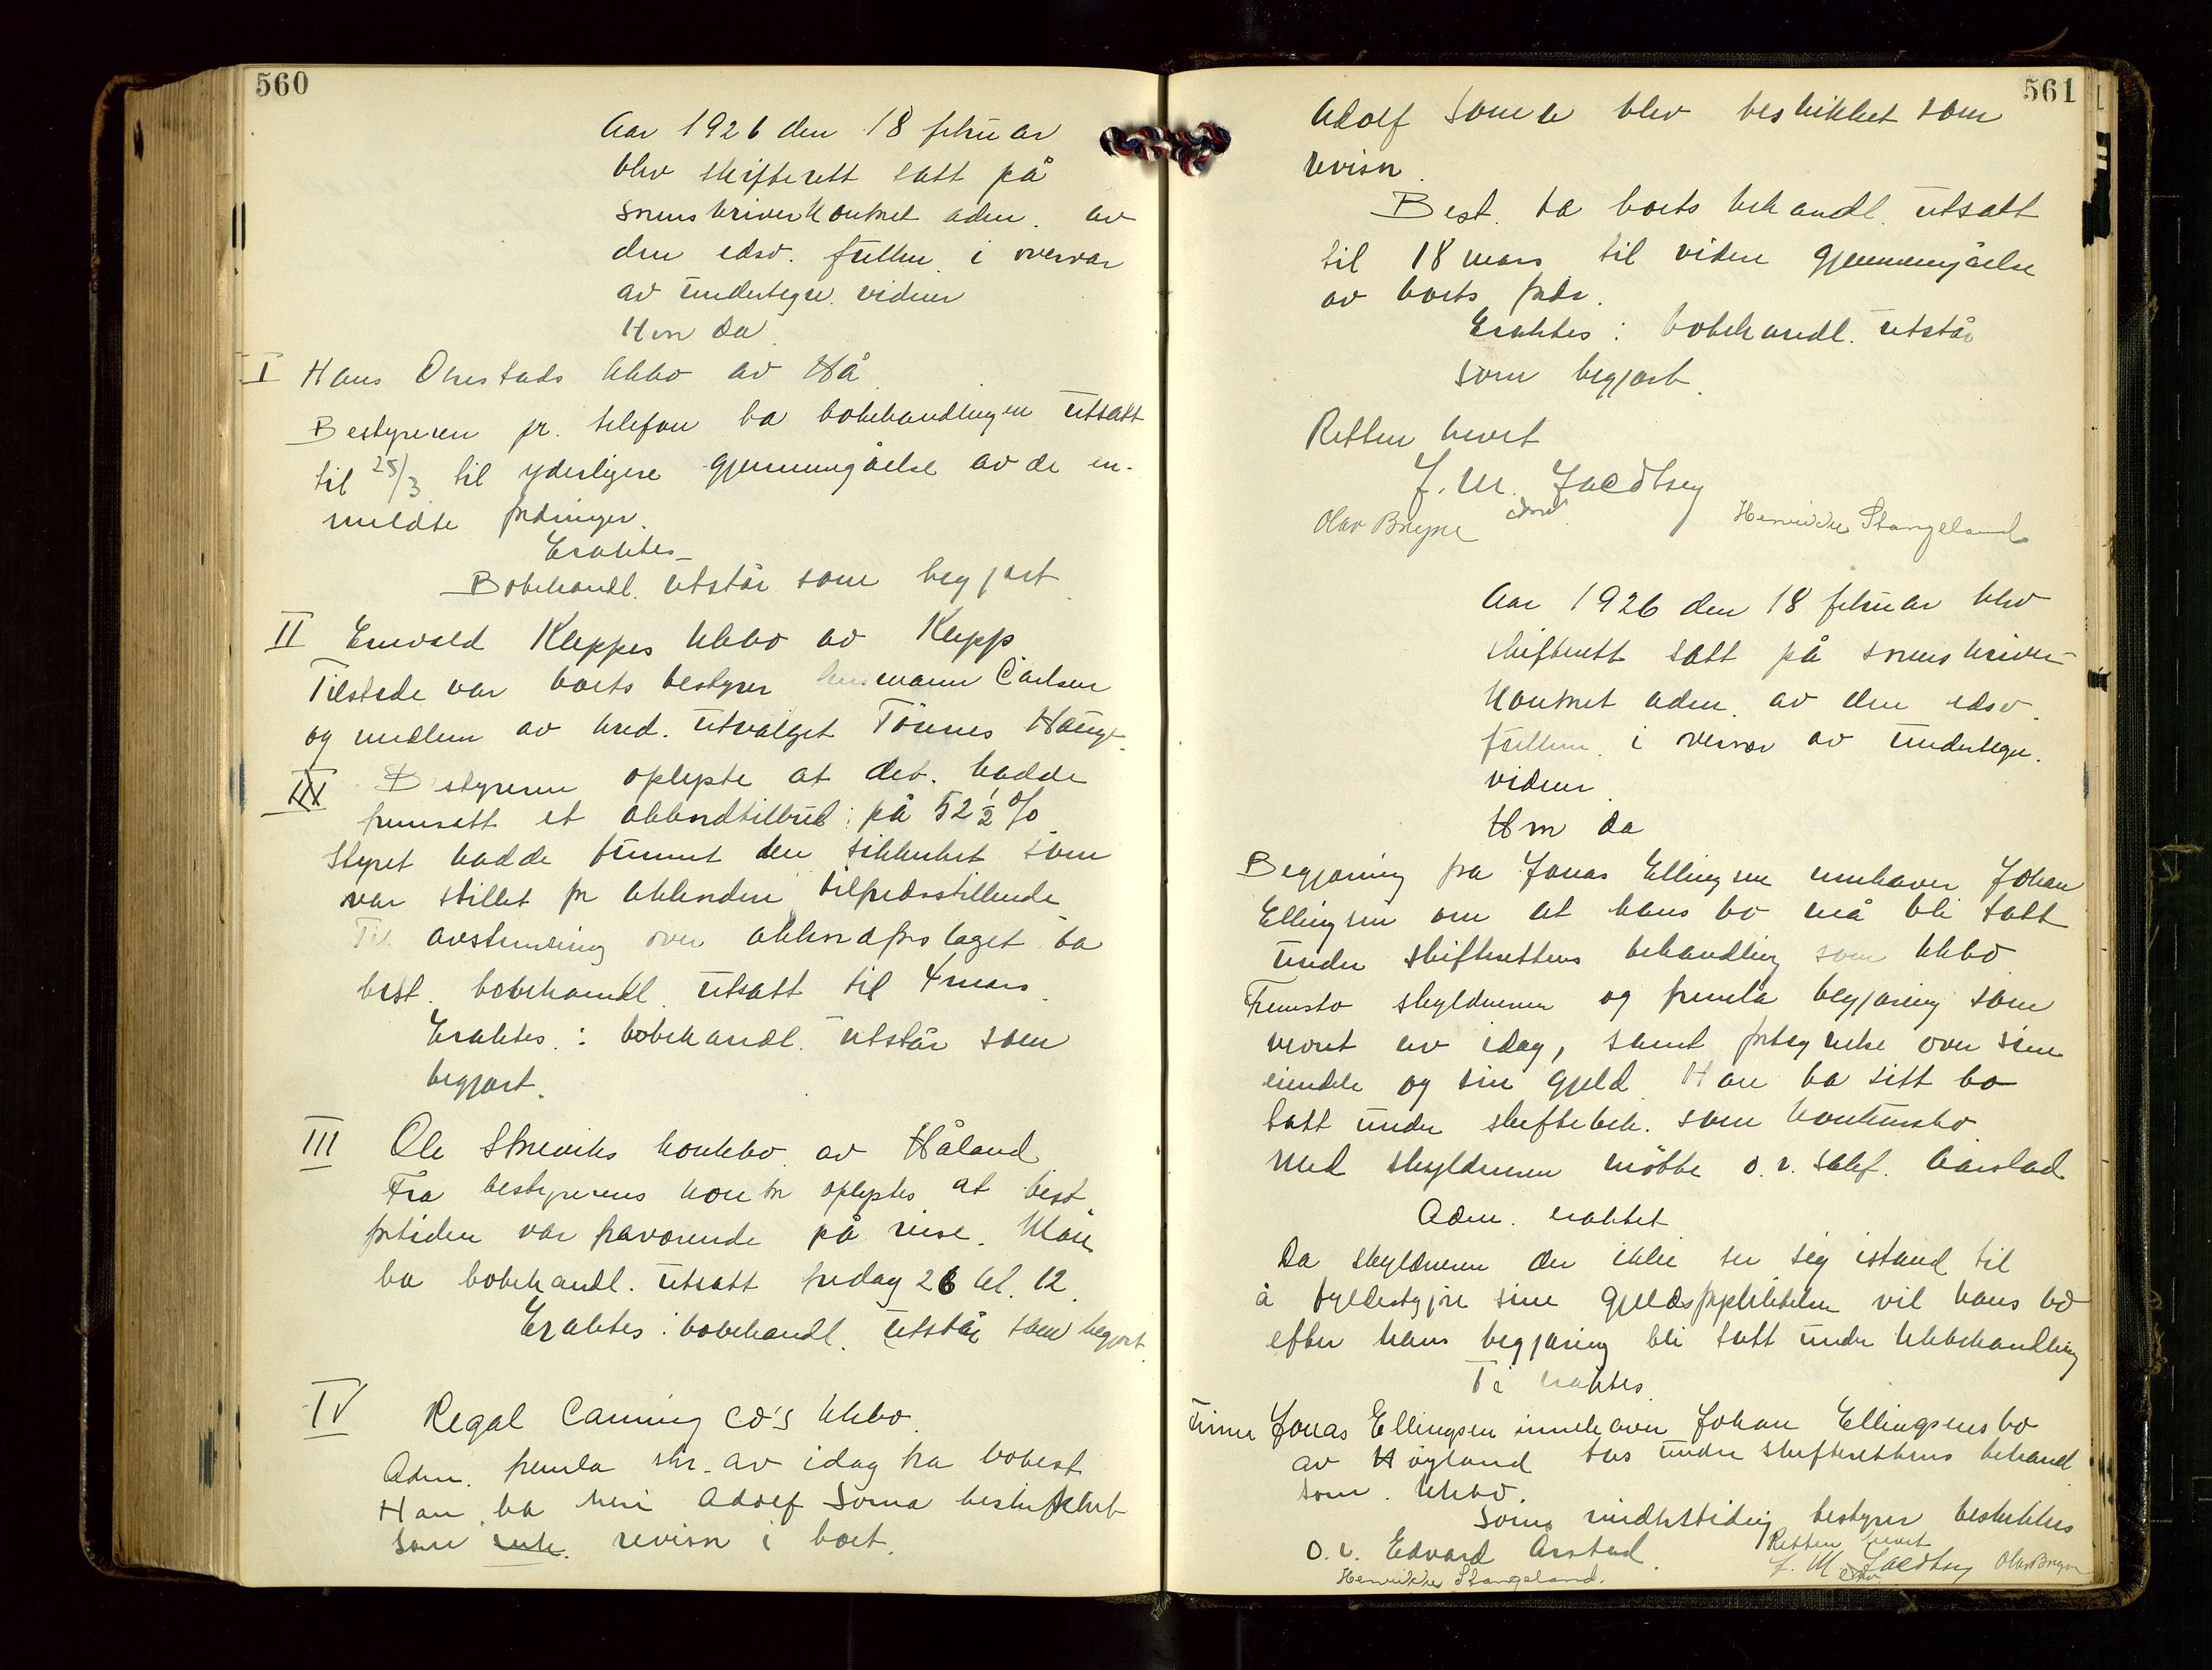 560
Aar 1926 den 18 februar
blev skifterett satt på
sorenskriverkontoret adm. av
den edsv. fullm. i overvær
av undertegn. vidner
Hvor da
I Hans Obrestads kkbo av Hå
Bestyreren pr. telefon ba bobehandlingen utsatt
til 25/3 til yderligere gjennemgåelse av de an-
meldte fordringer.
Eraktes
Bobehandl. utstår som begjært
II Enevald Kleppes kkbo av Klepp
Tilstede var boets bestyrer lensmann Carlsen
og medlem av kred. utvalget Tönnes Hauge.
Bestyreren oplyste at deb. hadde
fremsatt et akkordtilbud på 52 1/2 %
Styret hadde funnet den sikkerhet som
var stillet for akkorden tilfredsstillende
Til avstemning over akkordforslaget ba
best. bobehandl. utsatt til 4 mars.
Eraktes: bobehandl. utstår som
begjært.
III Ole Skreviks konkbo av Håland
Fra bestyrerens kontor oplystes at best
fortiden var fraværende på reise. Man
ba bobehandl. utsatt fredag 26 kl. 12.
Eraktes: bobehandl. utstår som begjært.
IV Regal Canning Co's kkbo.
Adm. fremla skr. av idag fra bobest
Han ba heri Adolf Soma beskikket
som revisor i boet.
561
Adolf Soma blev beskikket som
revisor.
Best. ba boets behandl. utsatt
til 18 mars til videre gjennemgåelse
av boets fordr.
Eraktes: bobehandl. utstår
som begjært.
Retten hevet
J. M. Jacobsen
edsv.
Olav Bryne Henrikke Stangeland
Aar 1926 den 18 februar blev
skifterett satt på sorenskriver-
kontoret adm. av den edsv.
fullm. i overvær av undertegn.
vidner.
Hvor da
Begjæring fra Jonas Ellingsen innehaver Johan
Ellingsen om at hans bo må bli tatt
under skifterettens behandling som kkbo
Fremsto skyldneren og fremla begjæring som
nevnt av idag, samt fortegnelse over sine
eiendele og sin gjeld. Han ba sitt bo
tatt under skiftebeh. som konkursbo.
Med skyldneren mötte o.r. sakf. Aarstad
Adm. eraktet
Da skyldneren der ikke ser sig istand til
å fyldestgjöre sine gjeldsforpliktelser vil hans bo
efter hans begjæring bli tatt under kkbehandling
Ti eraktes
Firma Jonas Ellingsen innehaver Johan Ellingsens bo
av Høyland tas under skifterettens behand
som kkbo.
Som midlertidig bestyrer beskikkes
o.r. Edvard Årstad.
Retten hevet
J. M. Jacobsen Olav Bryne
edsv.
Henrikke Stangeland.